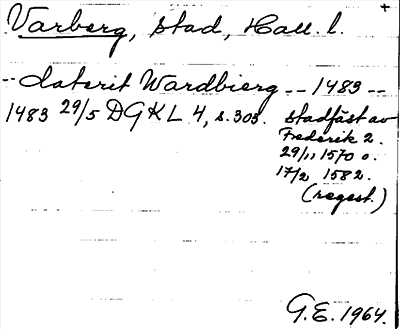 +
Varberg, stad, Hall. l.
-- daterit Wardbierg -- 1483 --
1483 29/5 DGKL 4, s. 303. stadfäst av
Frederik 2.
29/11 1570 o.
17/2 1582.
(regest.)
G.E. 1964.